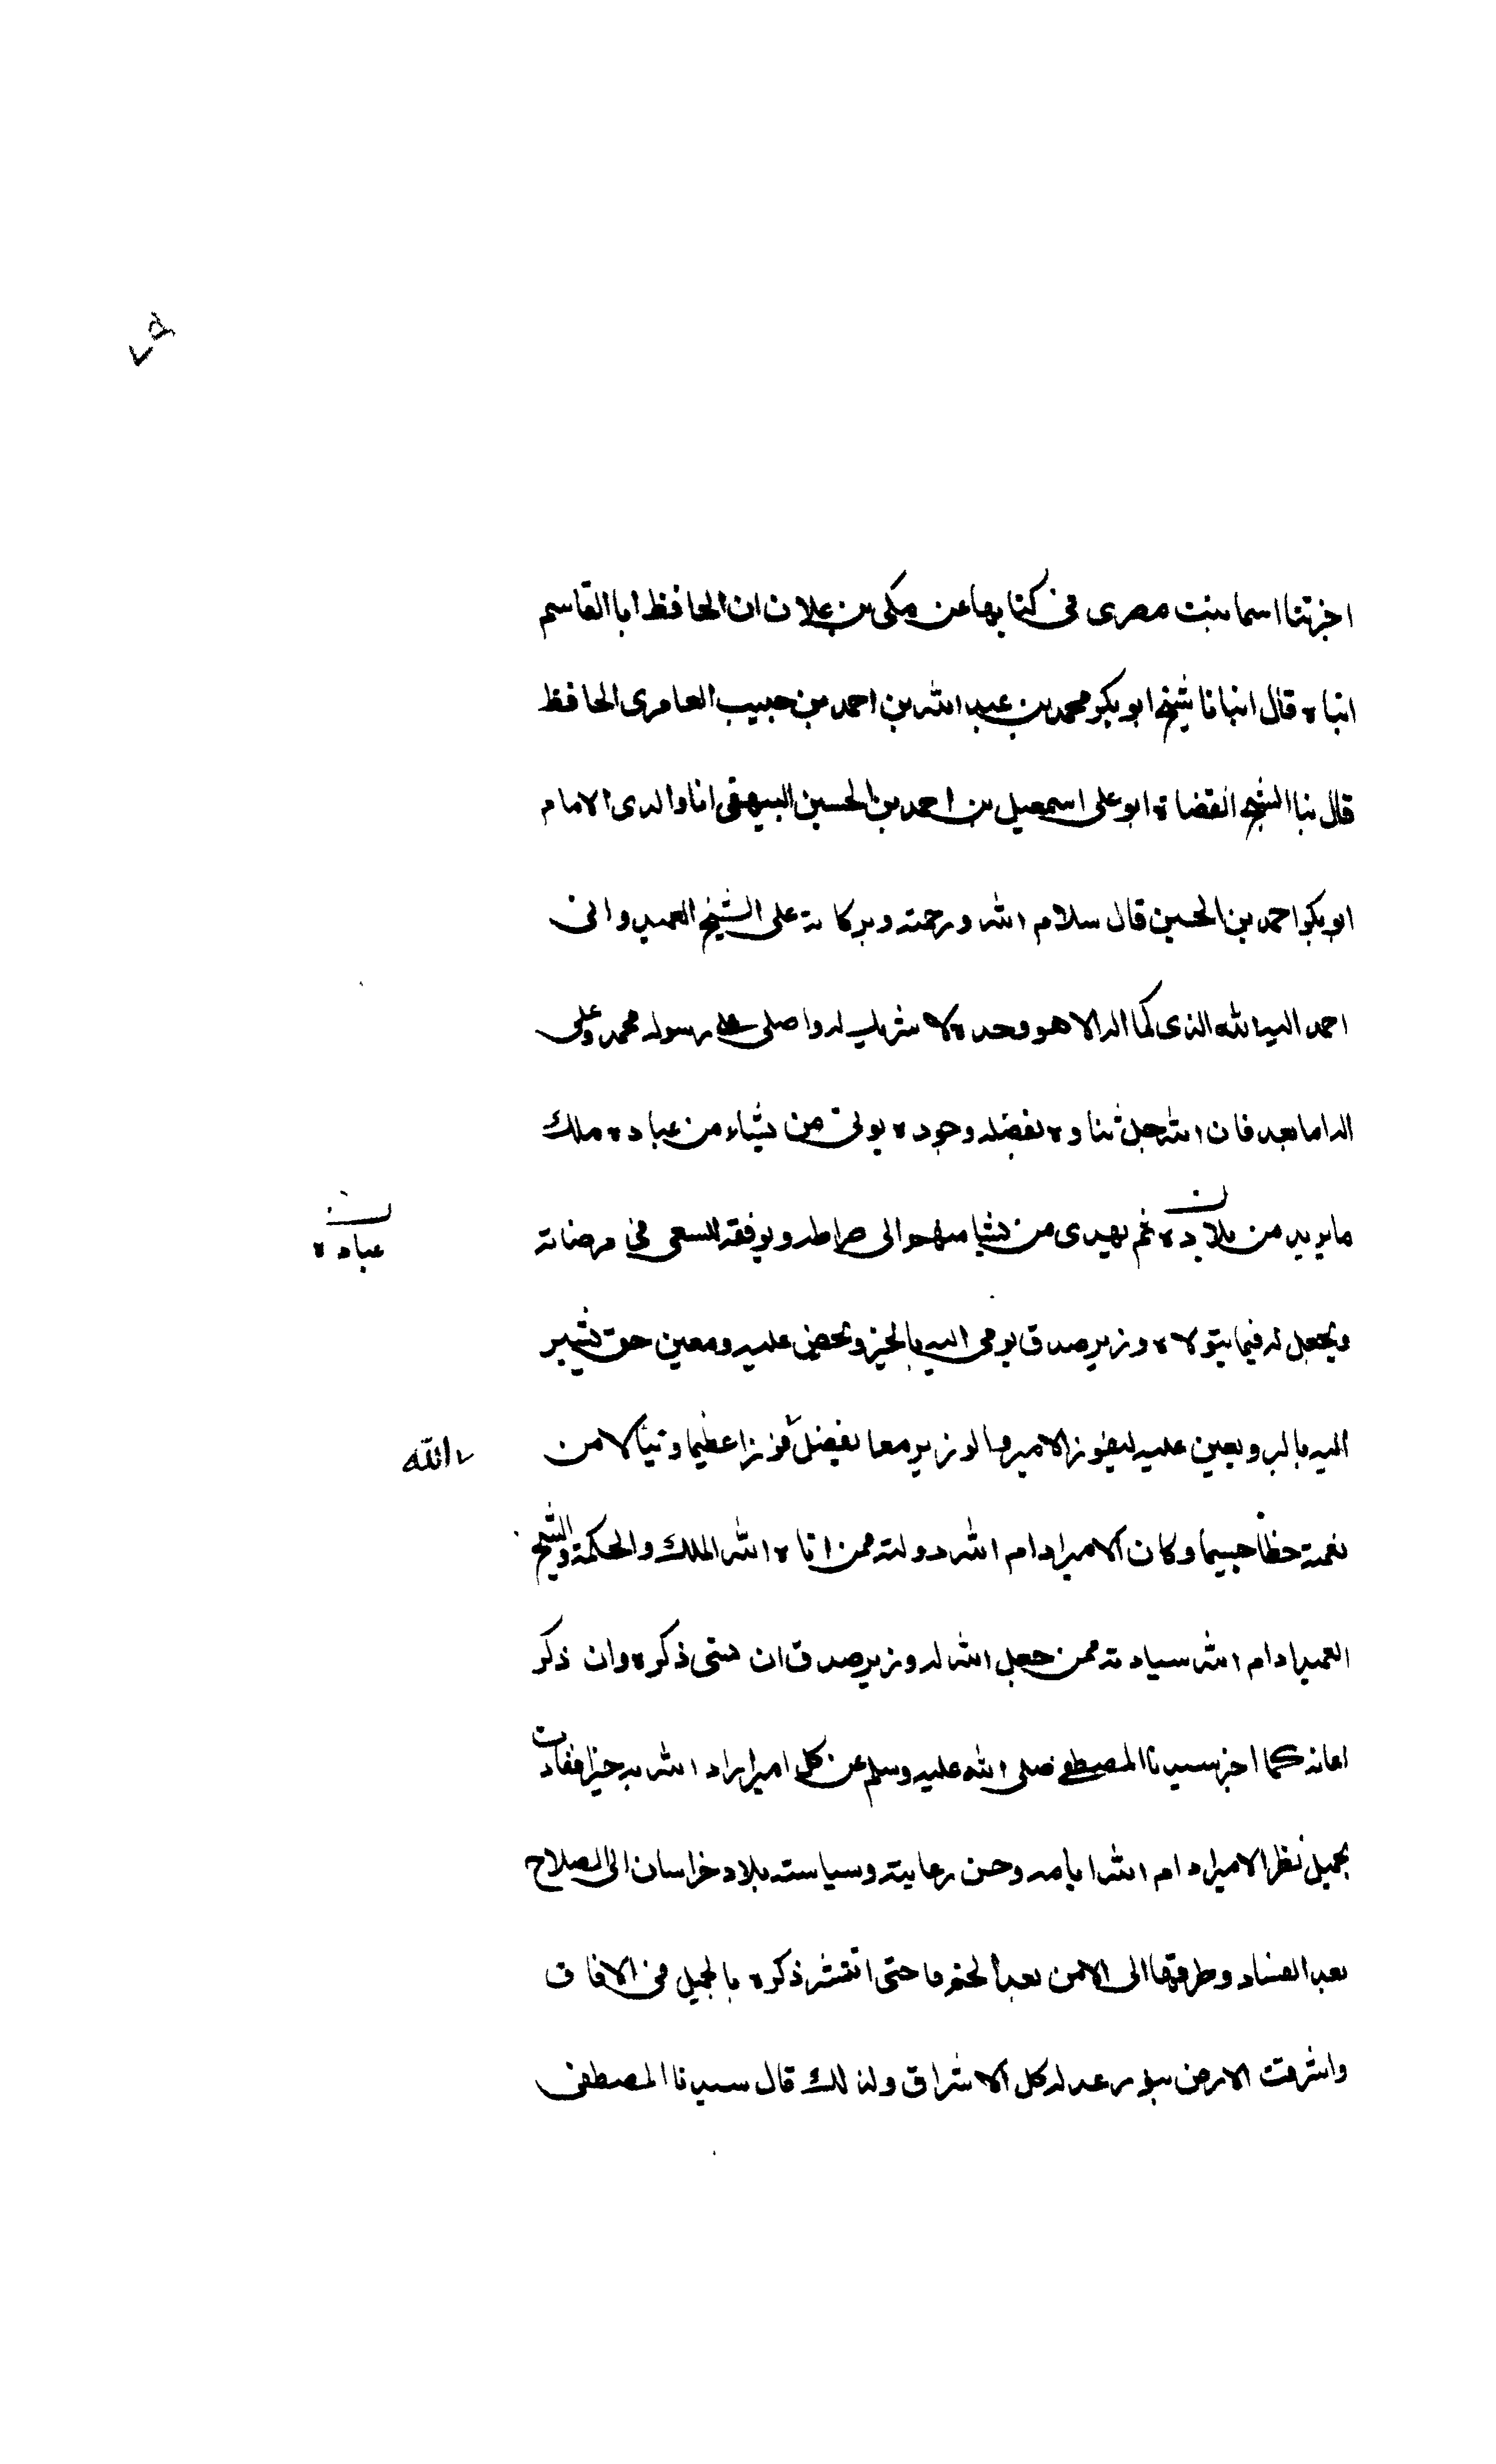 اخبرتنا اسما بنت صصرى في كتابها عن مكى بن علان ان الحافظ ابا القاسم
انباه قال انبانا شيخ ابو بكر محمد بن عبد الله بن احمد بن حبيب العامرى الحافظ
قال نبا الشيخ القضاة ابو على اسمعيل بن احمد بن الحسين البيهقى انا والدى الامام
ابو بكر احمد بن الحسين قال سلام الله ورحمته وبركاته على الشيخ العميد وانى
احمد اليه الله الذى لا اله الا هو وحده لا شريك له واصلى على رسوله محمد وعلى
اله اما بعد فان الله جل ثناوه بفضله وجوده يولى من يشاء من عباده ملك
ما يريد من بلاده ثم يهدى من يشا منهم الى صراطه ويوفقه للسعى في مرضاته
ن
عباده
ويجعل له فيما يتولاه وزير صدق يومى اليه بالخير ويحض عليه ومعين حق يشير
اليه بالبر ويعين عليه ليفوز الامير والوزير معا بفضل فوزا عظيما وينالا من
الله
نعمته حظا جسيما وكان الامير ادام الله دولته ممن اتاه الله الملك والحكمة والشيخ
العميد ادام الله سيادته ممن جعل الله له وزير صدق ان نسى ذكره وان ذكر
اعانه كما اخبر سيدنا المصطفى صلى الله عليه وسلم عن كل امير اراد الله به خيرا فعادت
بجميل نظر الامير ادام الله ايامه وحسن رعايته وسياسته بلاد خراسان الى الصلاح
بعد الفساد وطرقها الى الامن بعد الخوف حتى انتشر ذكره بالجميل في الافاق
واشرقت الارض بنور عدله كل الاشراق ولذلك قال سيدنا المصطفى